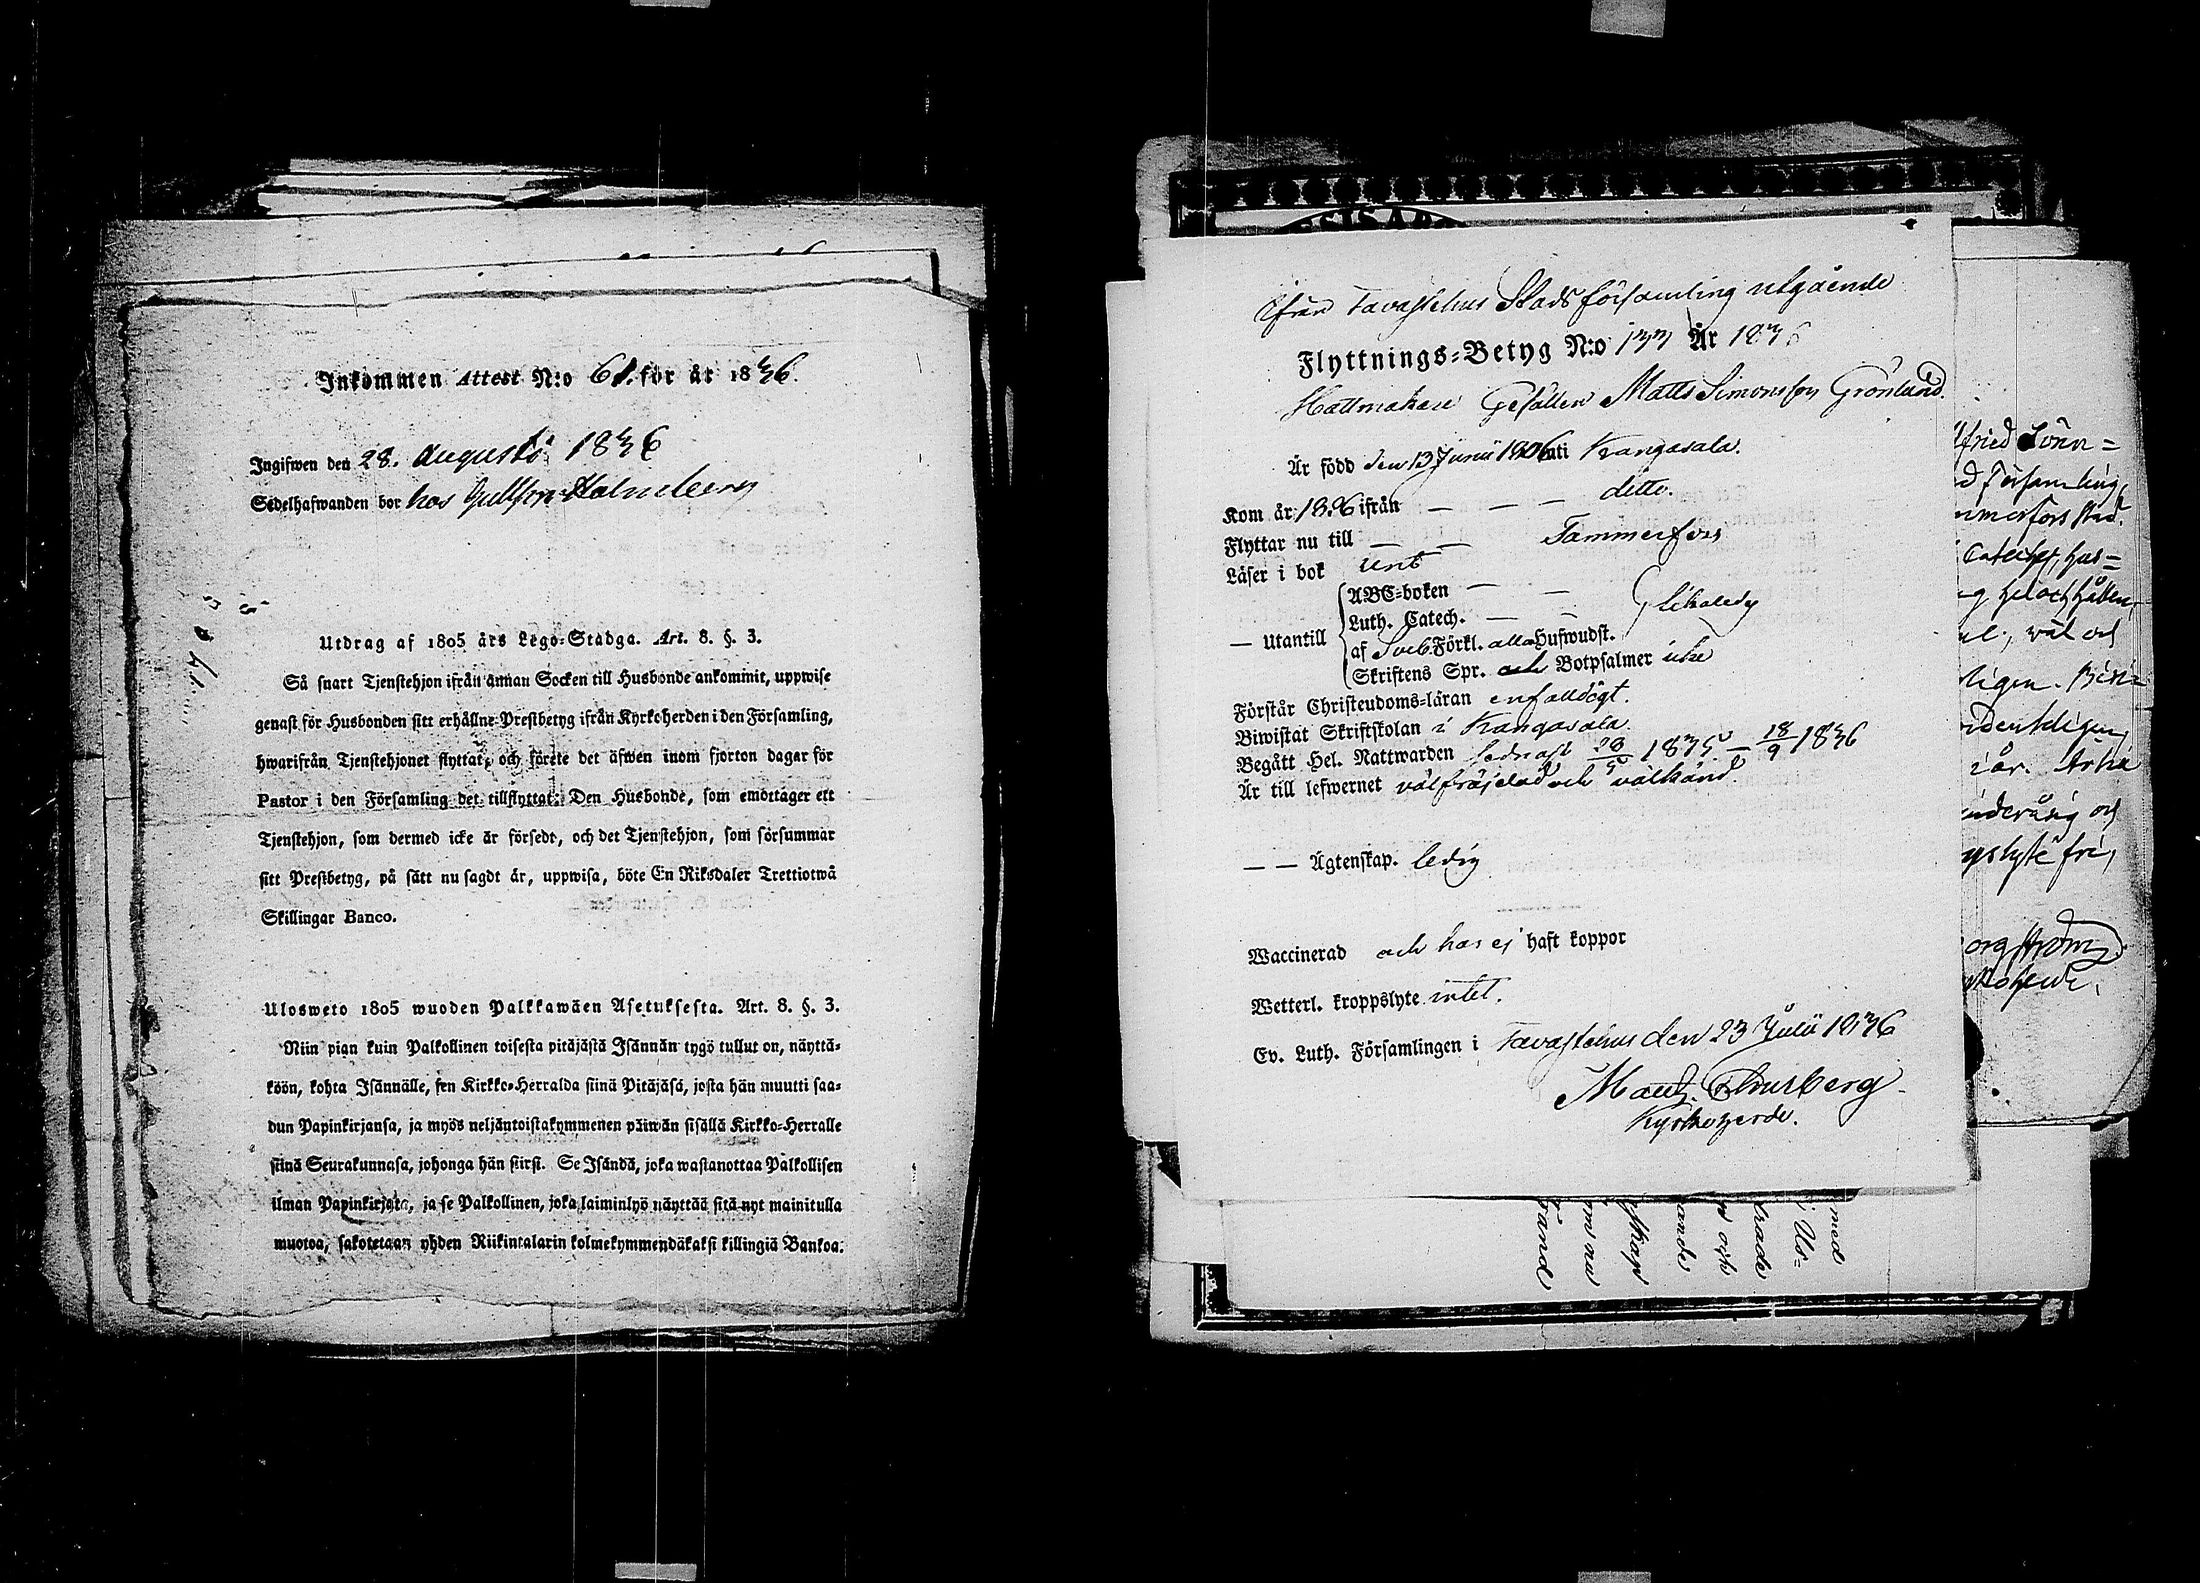 Inkommen Attest N:o 61. för år 1836.
Ingifwen den 28. Augusti 1836
Sedelhafwanden bor hos Gullsm Holmberg
Utdrag af 1805 års Lego-Stadga. Art. 8. §. 3.
Så snart Tjenstehjon ifrån annan Socken till Husbonde ankommit, uppwise
genast för Husbonden sitt erhållne Prestbetyg ifrån Kyrkoherden i den Församling,
hwarifrån Tjenstehjonet flyttat, och förete det äfwen inom fjorton dagar för
Pastor i den Församling det tillflyttat. Den Husbonde, som emottager ett
Tjenstehjon, som dermed icke är försedt, och det Tjenstehjon, som försummar
sitt Prestbetyg, på sätt nu sagdt är, uppwisa, böte En Riksdaler Trettiotwå
Skillingar Banco.
Ulosweto 1805 wuoden Palkkawäen Asetuksesta. Art. 8. §. 3.
Niin pian kuin Palkollinen toisesta pitäjästä Isännän tygö tullut on, näyttä-
köön, kohta Isännälle, sen Kirkko-Herralda siinä Pitäjäsä, josta hän muutti saa-
dun Papinkirjansa, ja myös neljäntoistakymmenen päiwän sisällä Kirkko-Herralle
siinä Seurakunnasa, johonga hän siirsi. Se Isändä, joka wastanottaa Palkollisen
ilman Papinkirjata, ja se Palkollinen, joka laiminlyö näyttää sitä nyt mainitulla
muotoa, sakotetaan yhden Riikintalarin kolmekymmendäkaksi killingiä Bankoa.
Ifrån Tavastehus Stads församling utgående
Flyttnings-Betyg N:o 133 År 1836
Hattmakare Gesällen Matts Simonsson Grönlund.
Är född den 13 Junii 1806 uti Kangasala.
Kom år 18 6 ifrån — — — ditto.
Flyttar nu till — — Tammerfors
Läser i bok rent
ABC-boken — —
Luth. Catech. —
— Utantill af Sveb. Förkl. alla Hufwudst.
Skriftens Spr. och Botpsalmer icke
Förstår Christendoms-läran enfaldigt.
Biwistat Skriftskolan i Kangasala
Begått Hel. Nattwarden sednast 28/5 1835 — 18/9 1836
Är till lefwernet välfräjdad och välkänd.
— — Ägtenskap. ledig
Waccinerad och har ej haft koppor
Wetterl. kroppslyte intet.
Ev. Luth. Församlingen i Tavastehus den 23 Julii 1836
Kyrkoherde.
lfried Lönn=
d Församling,
mmerfors stad.
Catech, hus=
el., väl och
ligen.
identligen
i år.
och
yslyte fri,
orgström
med
i Us=
trade
och
ande
skap
m nu
Fränd